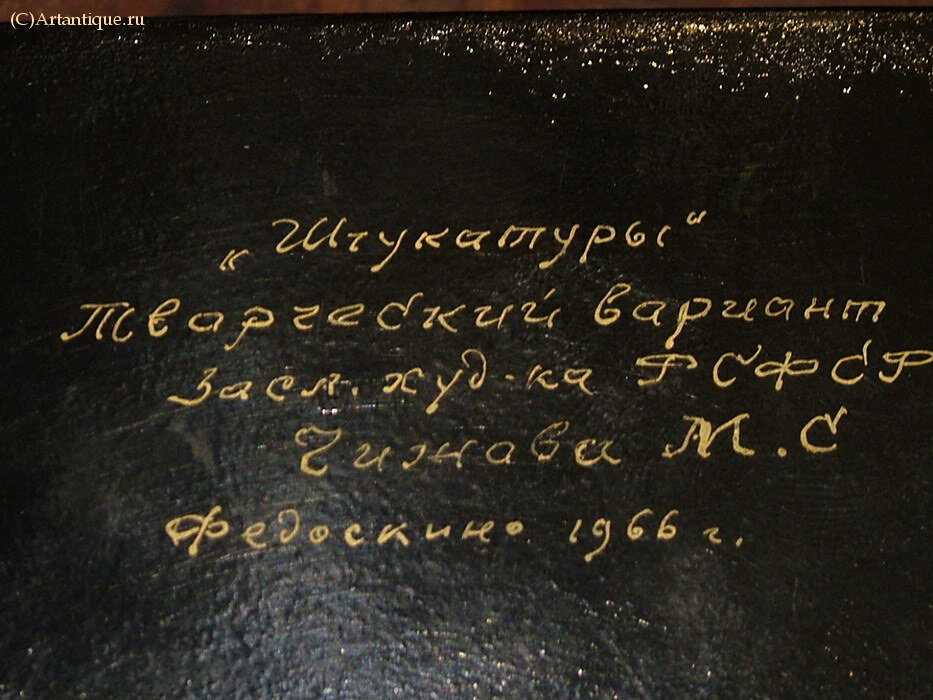 (C)Artantique.ru
„Штукатуры“
Творческий вариант
Засл. худ-ка РСФСР
Чижова М.С
Федоскино 1966 г.